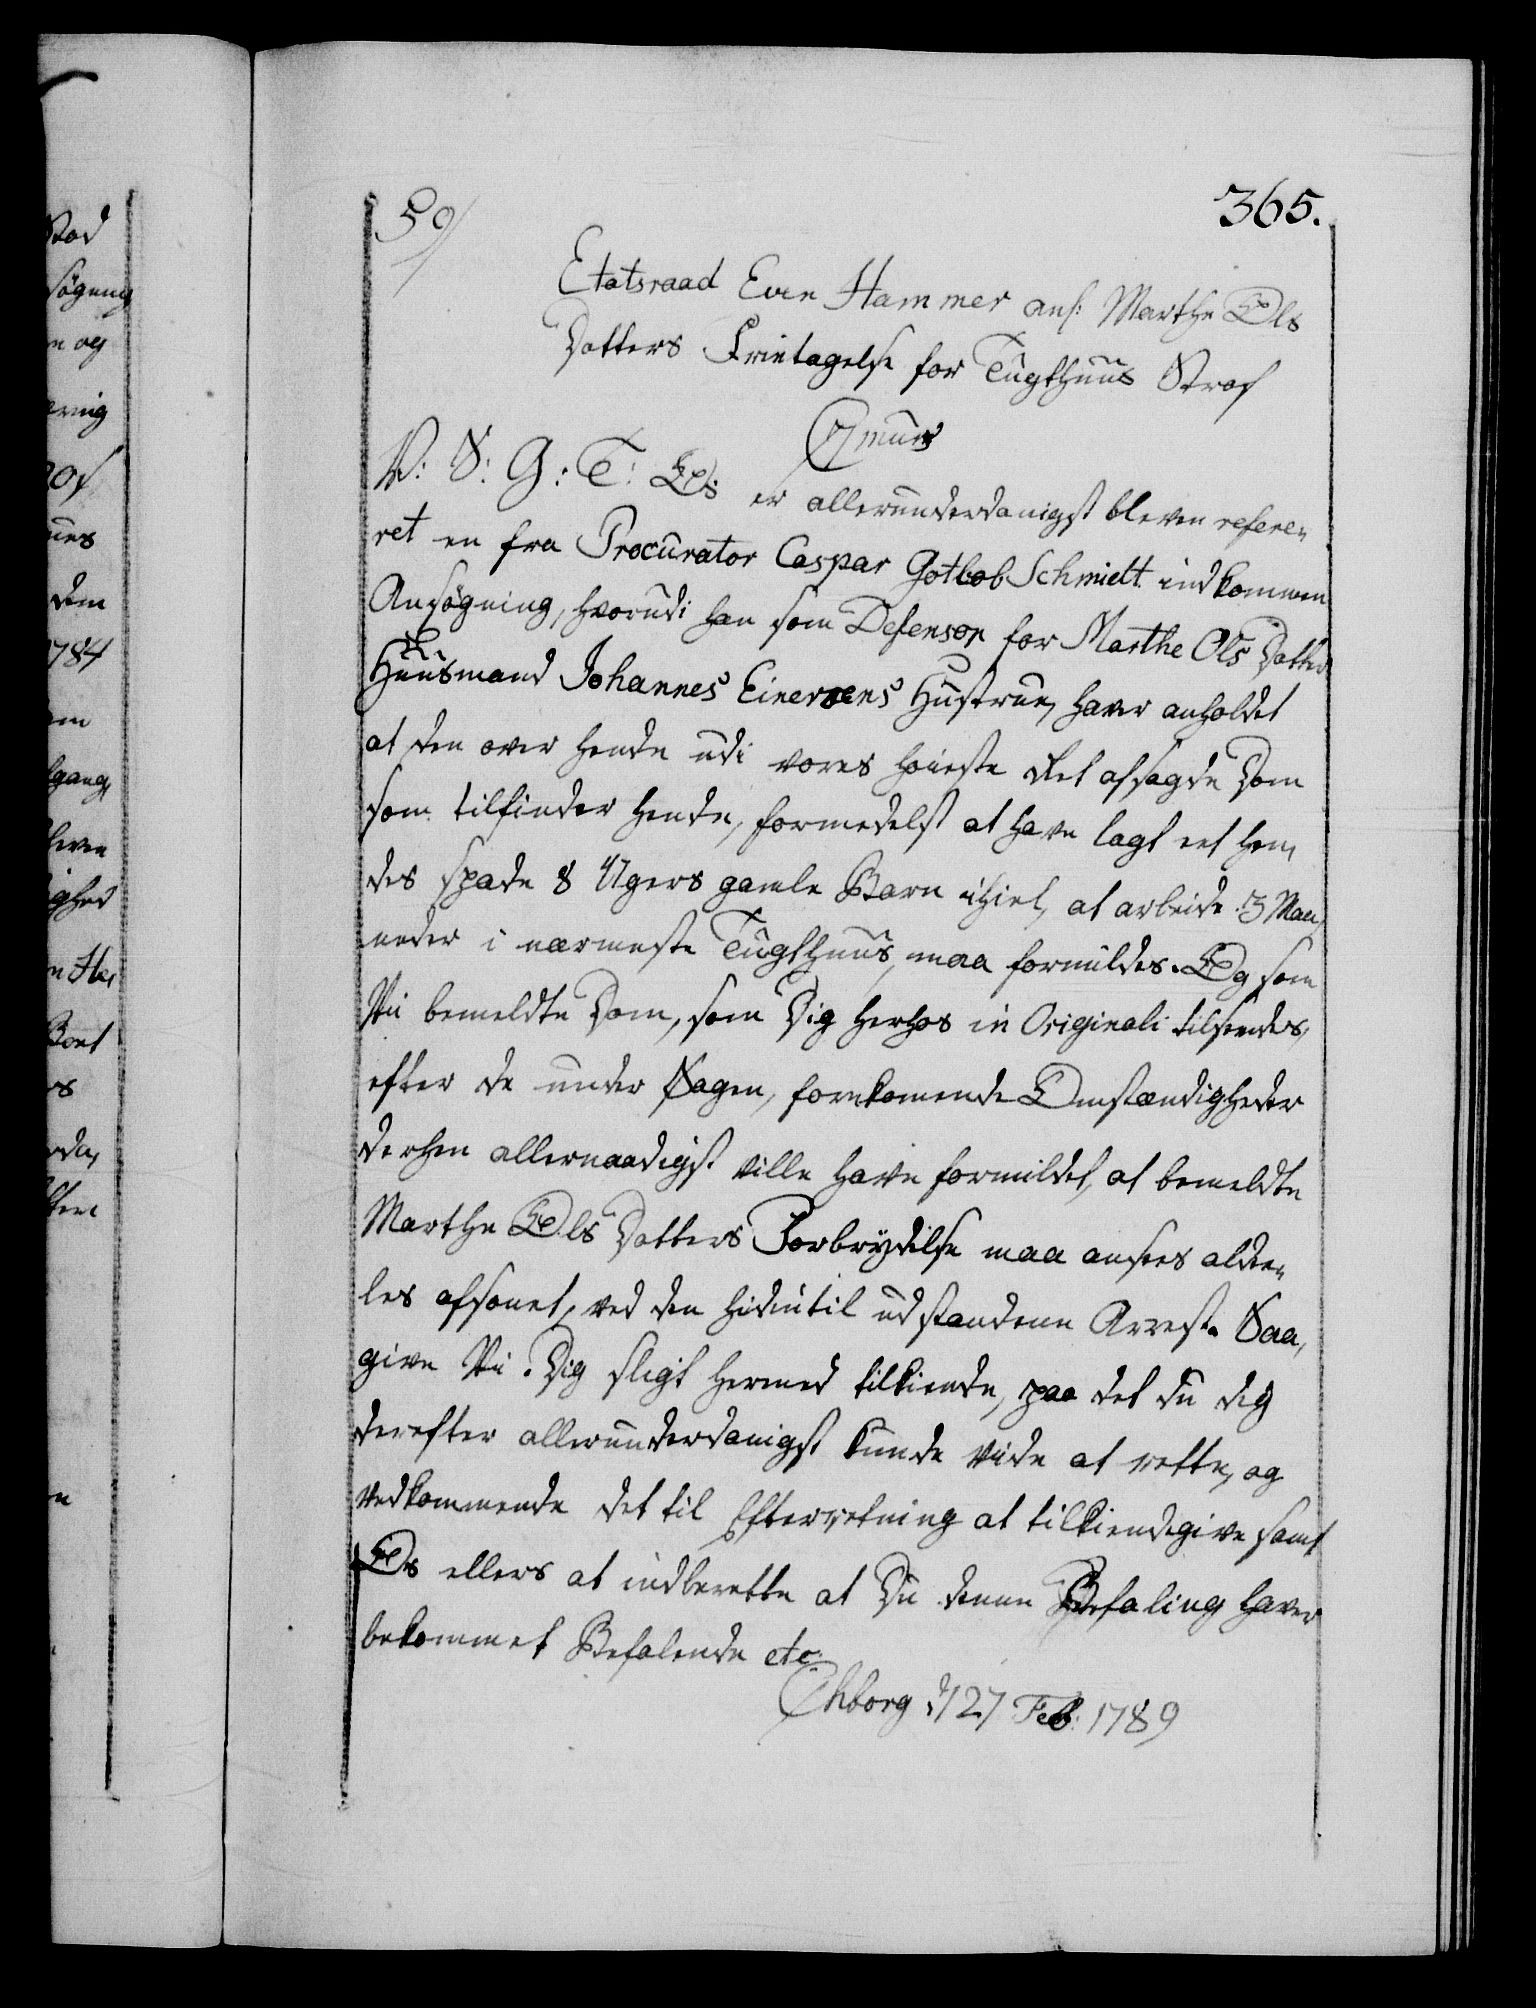 365.
59/
Etatsraad Even Hammer anl: Marthe Ols
Datters Fritagelse for Tugthuus Straf
C7mus
V: S: G: T: Os er allerunderdanigst bleven refere„
ret en fra Procurator Caspar Gotlob Schmidt indkommen
Ansøgning, hvorudi han som Defensor for Marthe Ols Datter
Huusmand Johannes Einersens Hustrue, haver anholdet
at den over hende udi vores høieste Ret afsagde Dom
som tilfinder hende, formedelst at have lagt eet hen„
des spæde 8 Ugers gamle Barn ihiel, at arbeide 3 Maa„
neder i nærmeste Tugthuus, maa formildes. Og som
Vii bemeldte Dom, som Dig herhos in Originali tilsendes,
efter de under Sagen, forekomende Omstændigheder
derhen allernaadigst ville have formildet, at bemeldte
Marthe Ols Datters Forbrydelse maa ansees aldee„
les afsonet, ved den hidintil udstandene Arrest. Saa,
give Vii Dig sligt hermed tilkiende, paa det du dig
derefter allerunderdanigst kunde vide at rette, og
vedkommende det til Efterretning at tilkiendegive samt
Os ellers at indberette at Du denne Befaling haver
bekommet Befalende etc
Chborg d 27 Feb: 1789
Stad
søgning
n og
1784